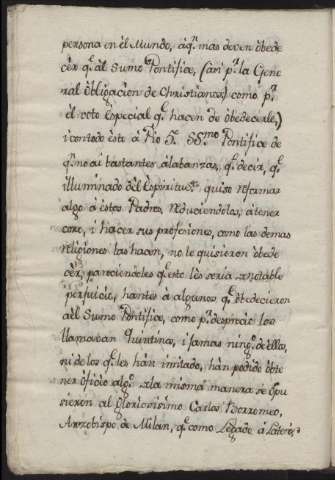 persona en èl Mundo, áq.ⁿ mas deven óbede
cèr q.ᵉ ál Sumo Pontifice, (ási p.ʳ la Gene
ral óbligacion de Christianos) como p.ʳ
èl voto Especial q.ᵉ hacen de óbedecerle,)
i contodo èsto á Pio 5.º SS.ᵐᵒ Pontifice de
q.ⁿ no ai bastantes álabanzas, q.ᵉ decir, q.ᵉ
illuminado dèl Espiritu S.ᵗᵒ quiso reformar
algo á èstos Padres, reduciendolos, átener
coro, i hacer sus profesiones, como las demas
religiones las hacen, no le quisieron óbede
cèr, pareciendoles q.ᵉ èsto lès seria notable
perjuicio, hantes á algunos q.ᵉ óbedecieron
àèl Sumo Pontifice, como p.ʳ desprecio los
llamavan Quintinos, i jamas ning.º dèllos,
ni de los q.ᵉ lès hán imitado, hàn podido óbte
ner óficio alg.º; èla misma manera se ópu
sieron al Gloriosisimo Carlos Borromeo,
Arzobispo de Milan, q.ᵉ como Legado á Latere,